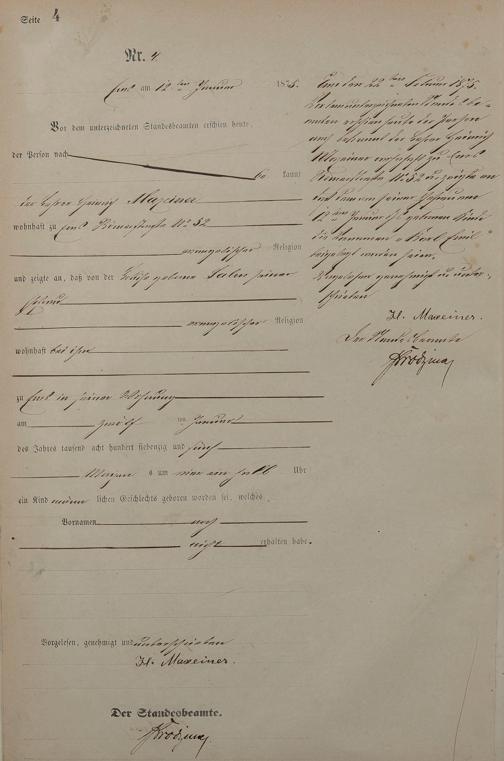 Seite 4
Nr. 4.
Ems am 12ten Januar 1875.
Vor dem unterzeichneten Standesbeamten erschien heute,
der Person nach
be kannt
der Heinrich Maxeiner
wohnhaft zu Ems Römerstraße No 32
evangelischer Religion
und zeigte an, daß von der geborne seiner
Ehefrau
evangelischer Religion
wohnhaft bei ihm
zu Ems in seiner Wohnung
am zwölf ten Januar
des Jahres tausend acht hundert siebenzig und fünf
Morgen s um ein halb Uhr
ein Kind männ lichen Geschlechts geboren worden sei, welches
Vornamen noch
nicht erhalten habe.
Vorgelesen, genehmigt und unterschrieben
H. Maxeiner.
Der Standesbeamte.
Ems den 22ten Februar 1875.
Vor dem unterzeichneten Standesbe-
amten erschien heute der Person
nach bekannt der Heinrich
Maxeiner wohnhaft zu Ems
Römerstraße No 32 und zeigte an
daß dem von seiner Ehefrau am
12ten Januar geborenen Kinde
die Vornamen Karl Emil
beigelegt worden seien.
Vorgelesen genehmigt und unter-
schrieben
H. Maxeiner.
Der Standesbeamte